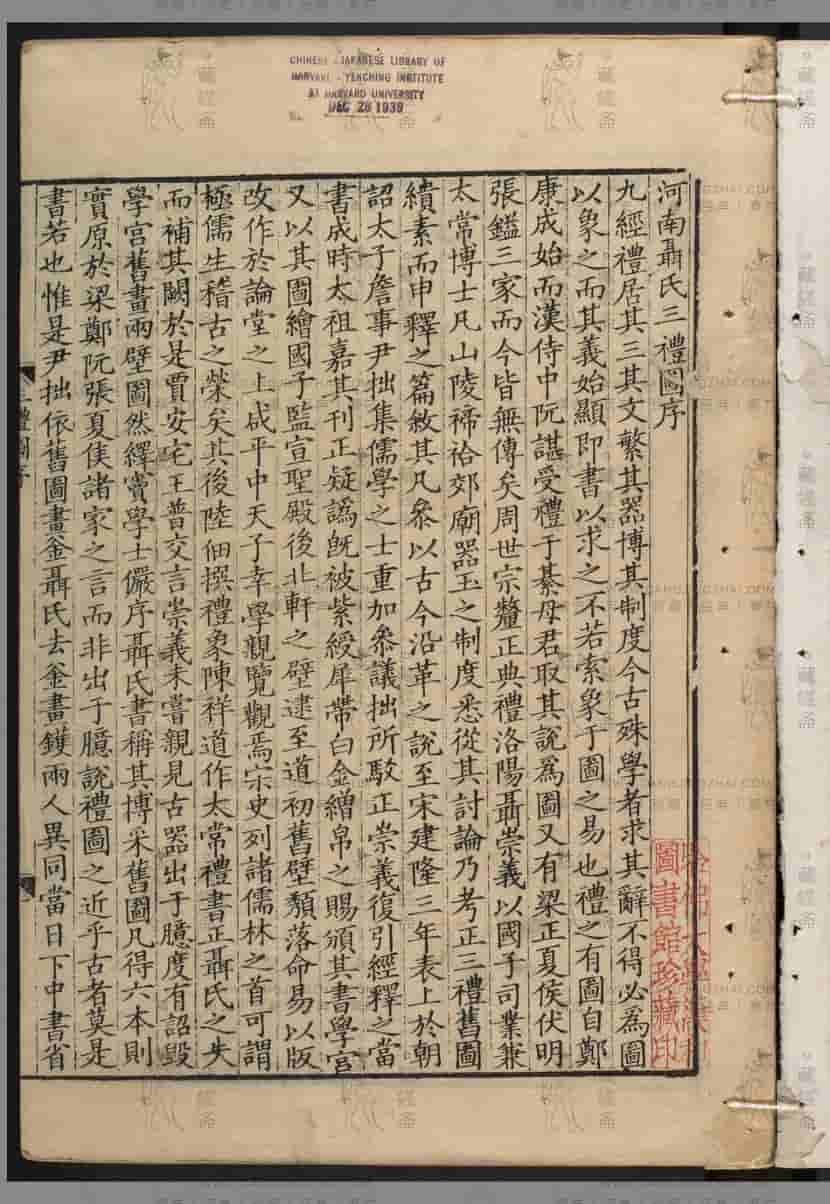 CHINESE - JAPANESE LIBRARY OF
HARVARD - YENCHING INSTITUTE
AT HARVARD UNIVERSITY
DEC 28 1939
河南聶氏三禮圖序
九經禮居其三其文繁其器博其制度今古殊學者求其辭不得必為圖
以象之而其義始顯即書以求之不若索象于圖之易也禮之有圖自鄭
康成始而漢侍中阮諶受禮于綦母君取其說為圖又有梁正夏侯伏明
張鎰三家而今皆無傳矣周世宗釐正典禮洛陽聶崇義以國子司業兼
太常博士凡山陵禘祫郊廟器玉之制度悉從其討論乃考正三禮舊圖
繢素而申釋之篇敘其凡叅以古今沿革之說至宋建隆三年表上於朝
詔太子詹事尹拙集儒學之士重加叅議拙所駁正崇義復引經釋之當
書成時太祖嘉其刊正疑譌旣被紫綬犀帶白金繒帛之賜頒其書學官
又以其圖繪國子監宣聖殿後北軒之壁逮至道初舊壁頽落命易以版
改作於論堂之上咸平中天子幸學親覽觀焉宋史列諸儒林之首可謂
極儒生稽古之榮矣其後陸佃撰禮象陳祥道作太常禮書正聶氏之失
而補其闕於是賈安宅王普交言崇義未嘗親見古器出于臆度有詔毀
學宮舊畫兩壁圖然繹竇學士儼序聶氏書稱其博采舊圖凡得六本則
實原於梁鄭阮張夏侯諸家之言而非出于臆說禮圖之近乎古者莫是
書若也惟是尹拙依舊圖畫釜聶氏去釜畫鑊兩人異同當日下中書省
三禮圖序
圖書館珍藏印